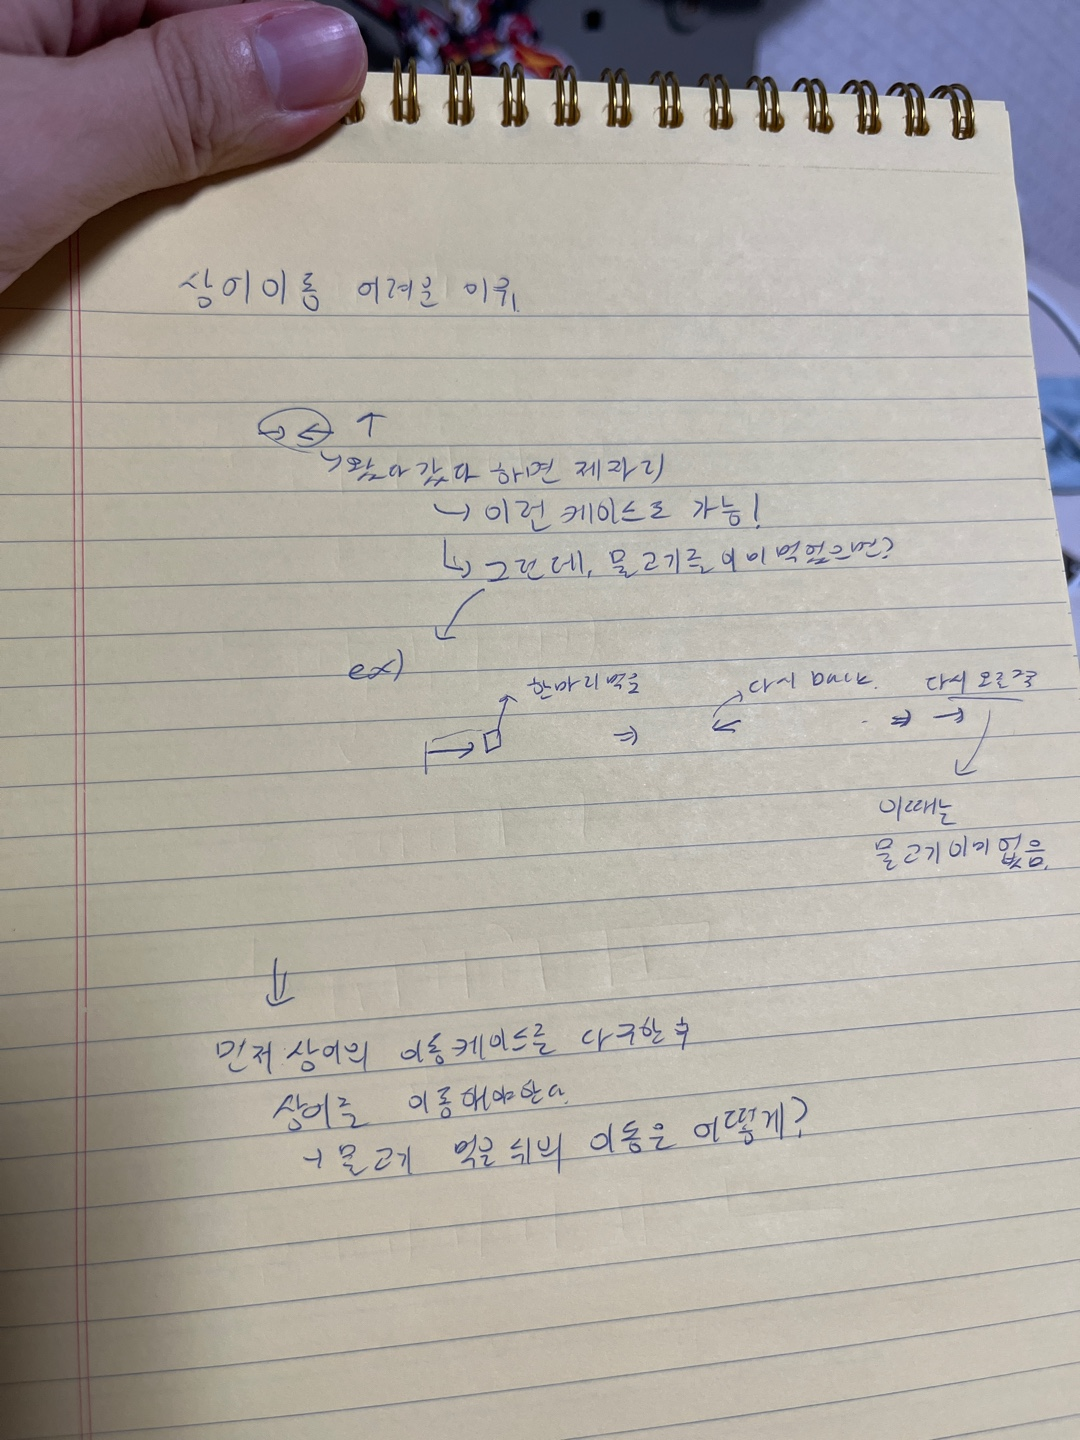 상어이동 어려운 이유
→ ← ↑
왔다 갔다 하면 제자리
→ 이런 케이스로 가능!
→ 그런데, 물고기를 이미 먹었으면?
ex)
한마리먹음 다시 다시 오른쪽
이때는
물고기 이미 없음.
먼저 상어의 이동케이스를 다 구한 후
상어를 이동해야한다.
→ 물고기 먹은 뒤의 이동은 어떻게?